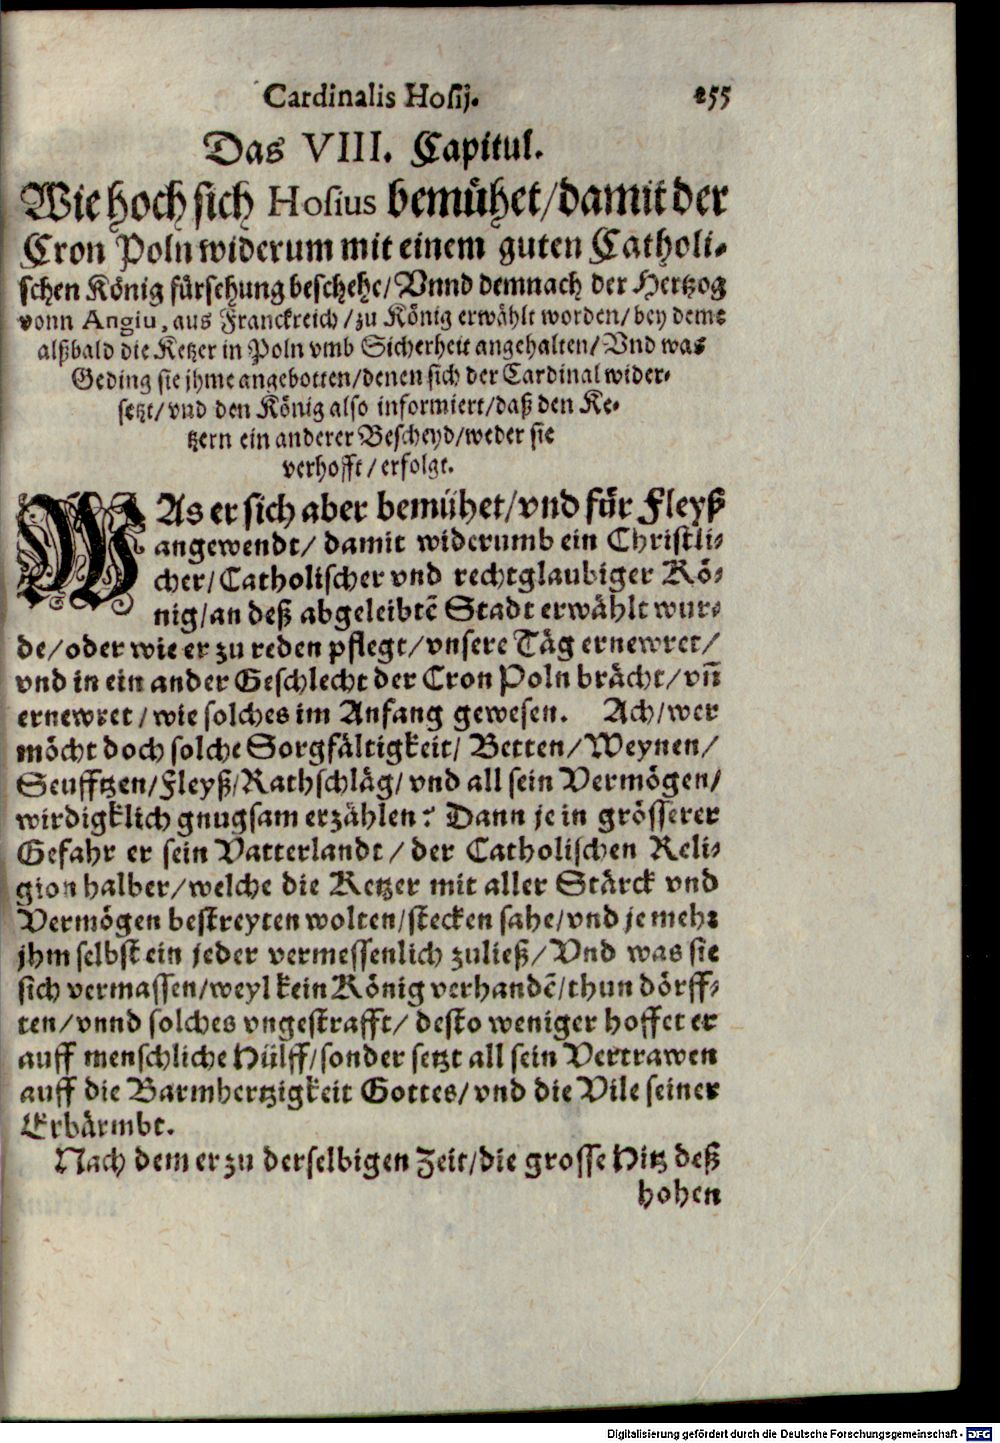 Cardinalis Hosij. 255
Das VIII. Capitul.
Wie hoch sich Hosius bemühet/damit der
Cron Poln widerum mit einem guten Catholi-
schen König fürsehung beschehe/Vnnd demnach der Hertzog
vonn Angiu, aus Franckreich/zu König erwählt worden/bey deme
alßbald die Ketzer in Poln vmb Sicherheit angehalten/Vnd was
Geding sie jhme angebotten/denen sich der Cardinal wider-
setzt/vnd den König also informiert/daß den Ke-
tzern ein anderer Bescheyd/weder sie
verhofft/erfolgt.
WAs er sich aber bemühet/vnd für Fleyß
angewendt/ damit widerumb ein Christli-
cher/Catholischer vnd rechtglaubiger Kö-
nig/an deß abgeleibtē Stadt erwählt wur-
de/oder wie er zu reden pflegt/vnsere Täg ernewret/
vnd in ein ander Geschlecht der Cron Poln brächt/vñ
ernewret/wie solches im Anfang gewesen. Ach/wer
möcht doch solche Sorgfältigkeit/ Betten/Weynen/
Seufftzen/Fleyß/Rathschläg/ vnd all sein Vermögen/
wirdigklich gnugsam erzählen? Dann je in grösserer
Gefahr er sein Vatterlandt/ der Catholischen Reli-
gion halber/welche die Ketzer mit aller Stärck vnd
Vermögen bestreyten wolten/stecken sahe/vnd je mehr
jhm selbst ein jeder vermessenlich zuließ/Vnd was sie
sich vermassen/weyl kein König verhandē/thun dörff-
ten/vnnd solches vngestrafft/ desto weniger hoffet er
auff menschliche Hülff/sonder setzt all sein Vertrawen
auff die Barmhertzigkeit Gottes/vnd die Vile seiner
Erbärmbt.
Nach dem er zu derselbigen Zeit/die grosse Hitz deß
hohen
Digitalisierung gefördert durch die Deutsche Forschungsgemeinschaft - DFG